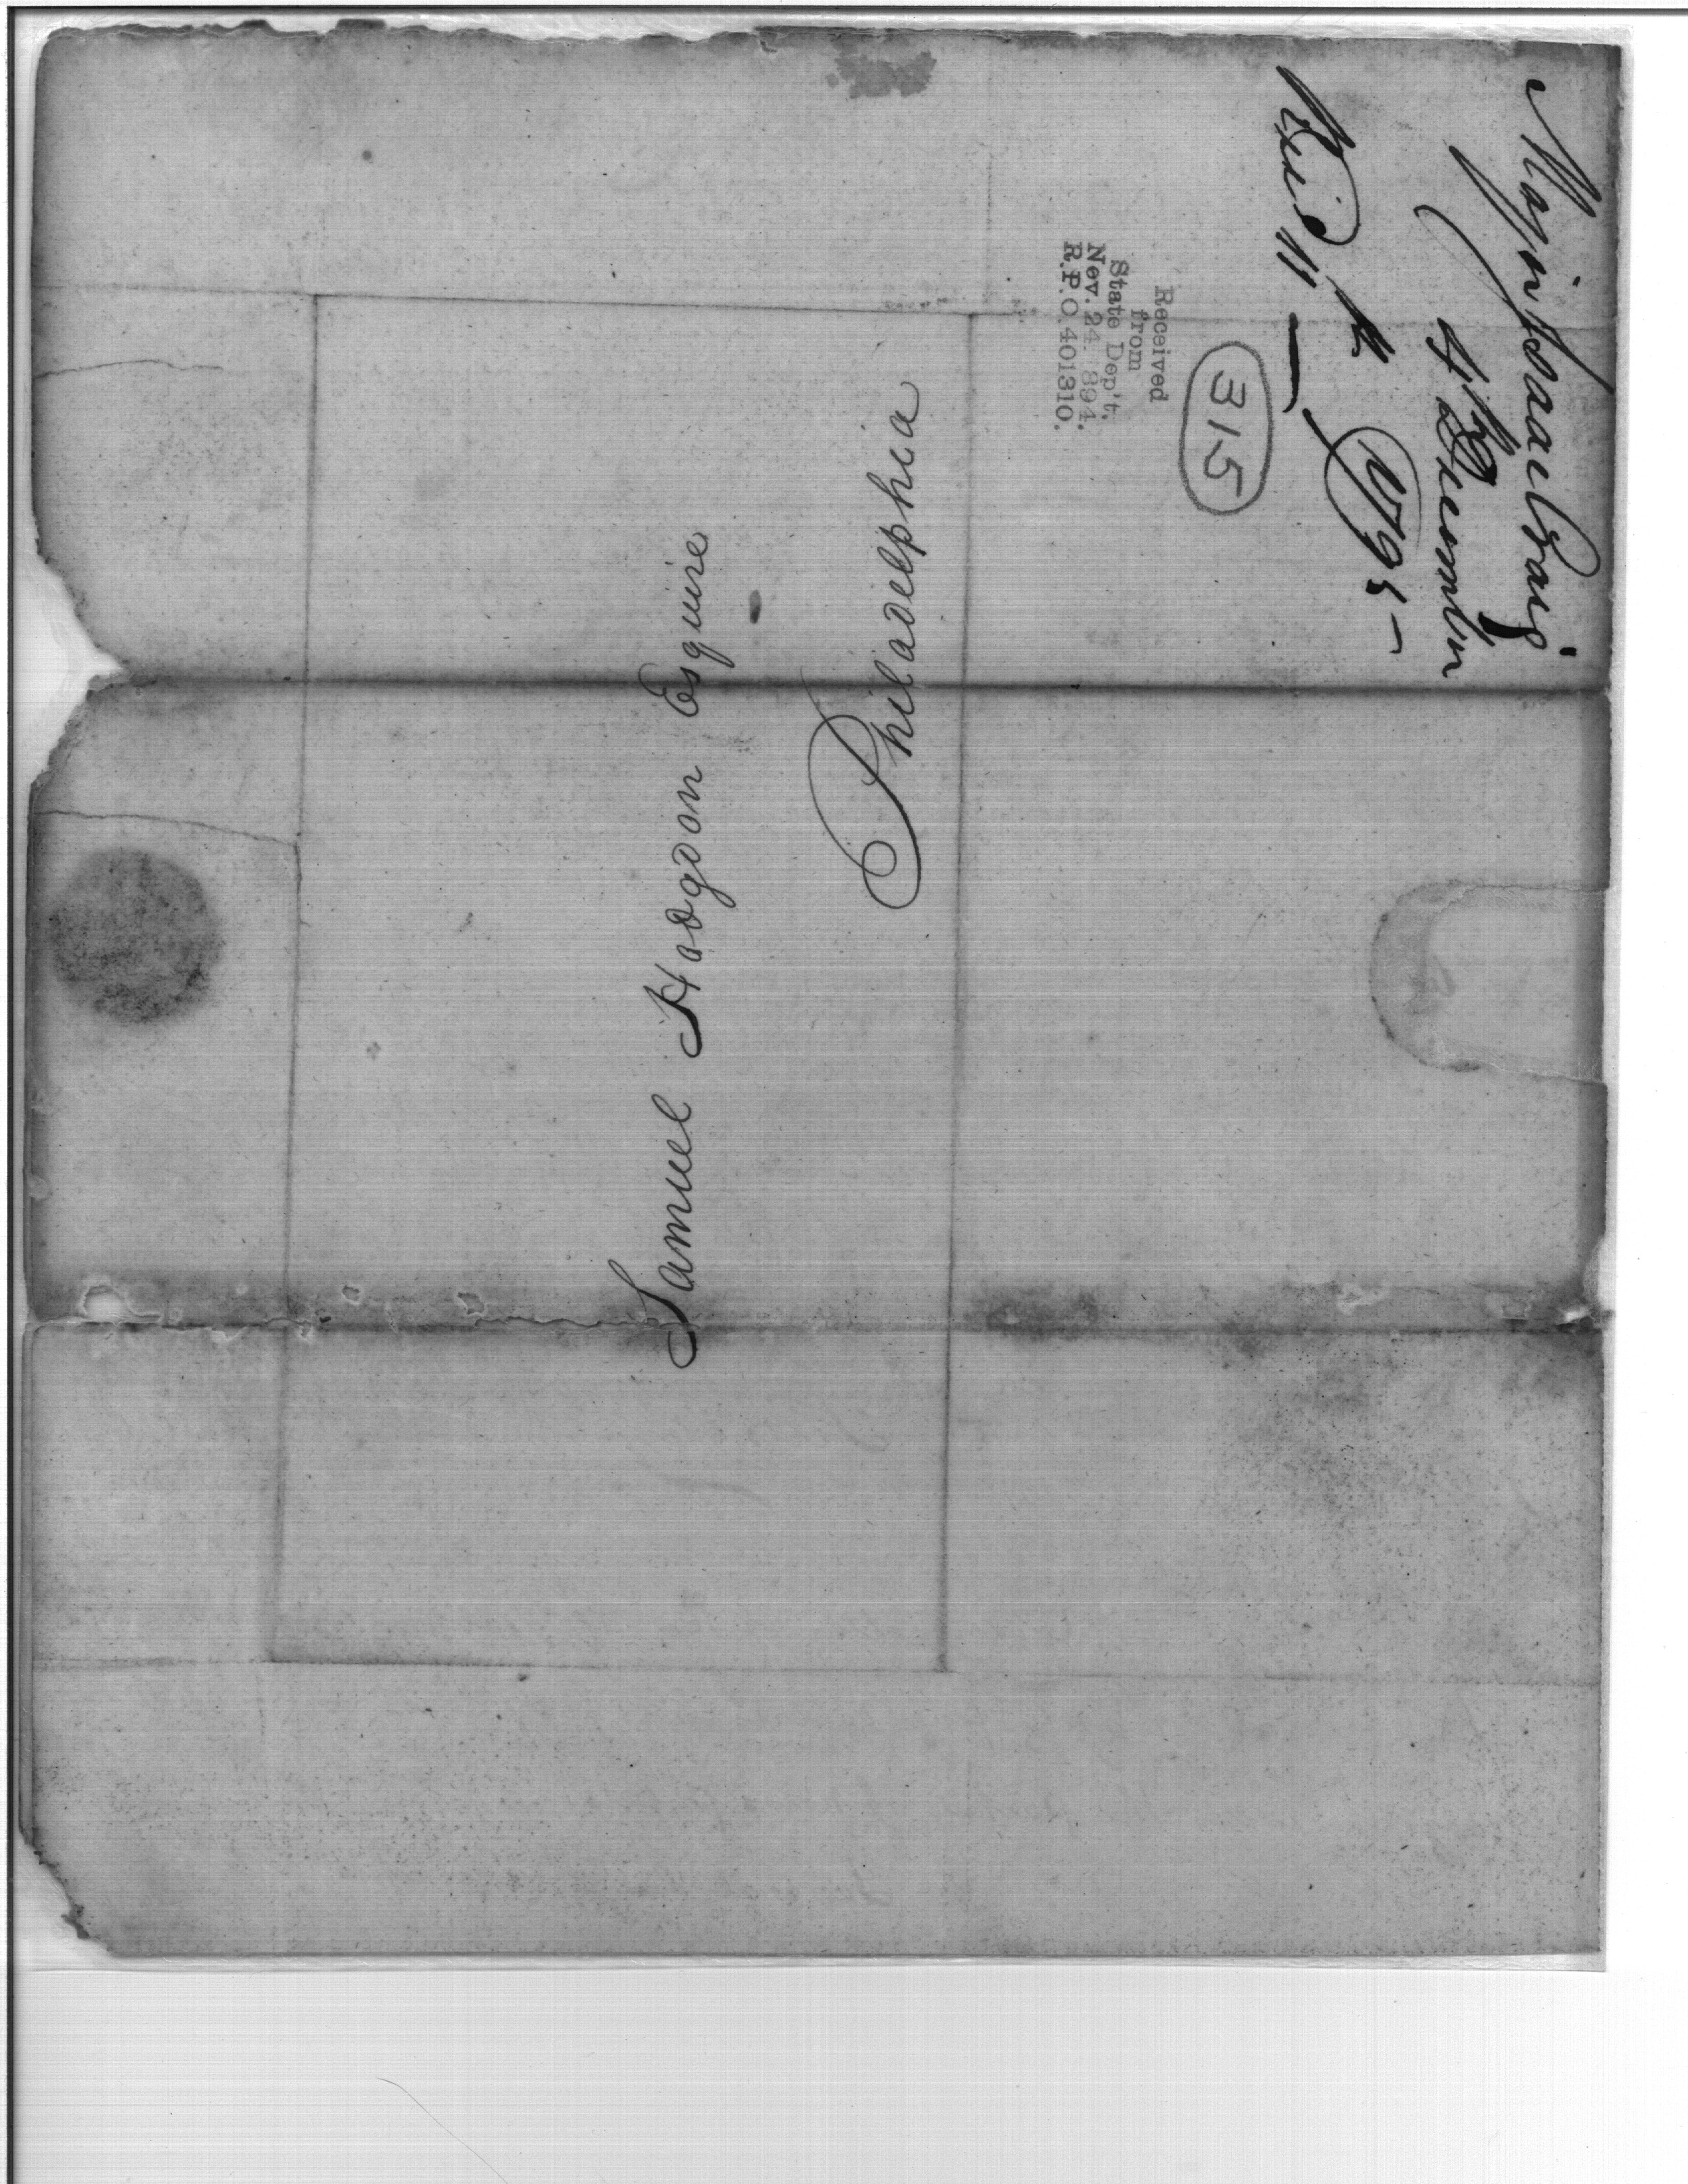 Major Isaac Craig
4th December
Rec'd 11th — 1795 —
315
Received
from
State Dep't.
Nov. 24. 894.
R.P.O. 401310.
Samuel Hodgdon Esquire
Philadelphia